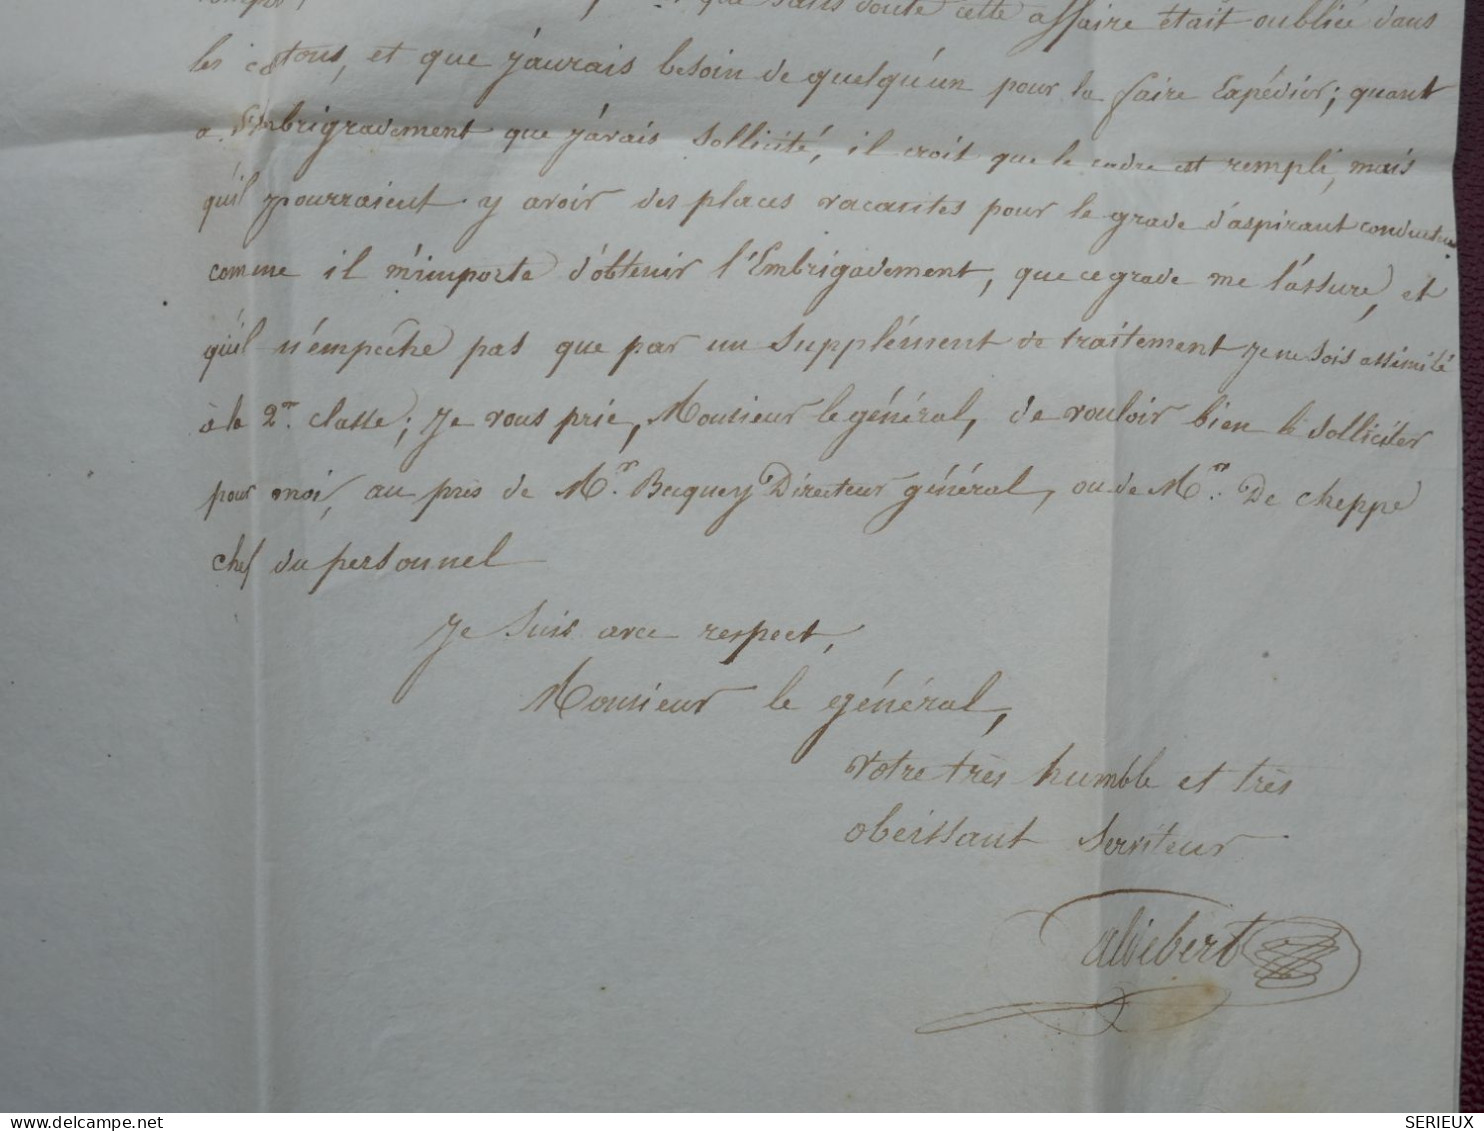 que sans doute cette affaire était oubliée dans
les cartons, et que j'aurais besoin de quelqu'un pour la faire Expédier; quant
a l'Embrigradement que j'avais sollicité, il croit que le cadre est rempli, mais
qu'il pourraient y avoir des places vacantes pour le grade d'aspirant conducteur
comme il m'importe d'obtenir l'Embrigadement, que ce grade me l'assure, et
qu'il n'émpêche pas que par un Supplément de traitement je ne sois assimilé
à la 2me classe; Je vous prie, Monsieur le général, de vouloir bien le solliciter
pour moi, au près de Mr. Becquey Directeur général, ou de Mr. De Cheppe
chef du personnel
Je Suis avec respect,
Monsieur le général,
Votre très humble et très
obeissant Serviteur
SERIEUX